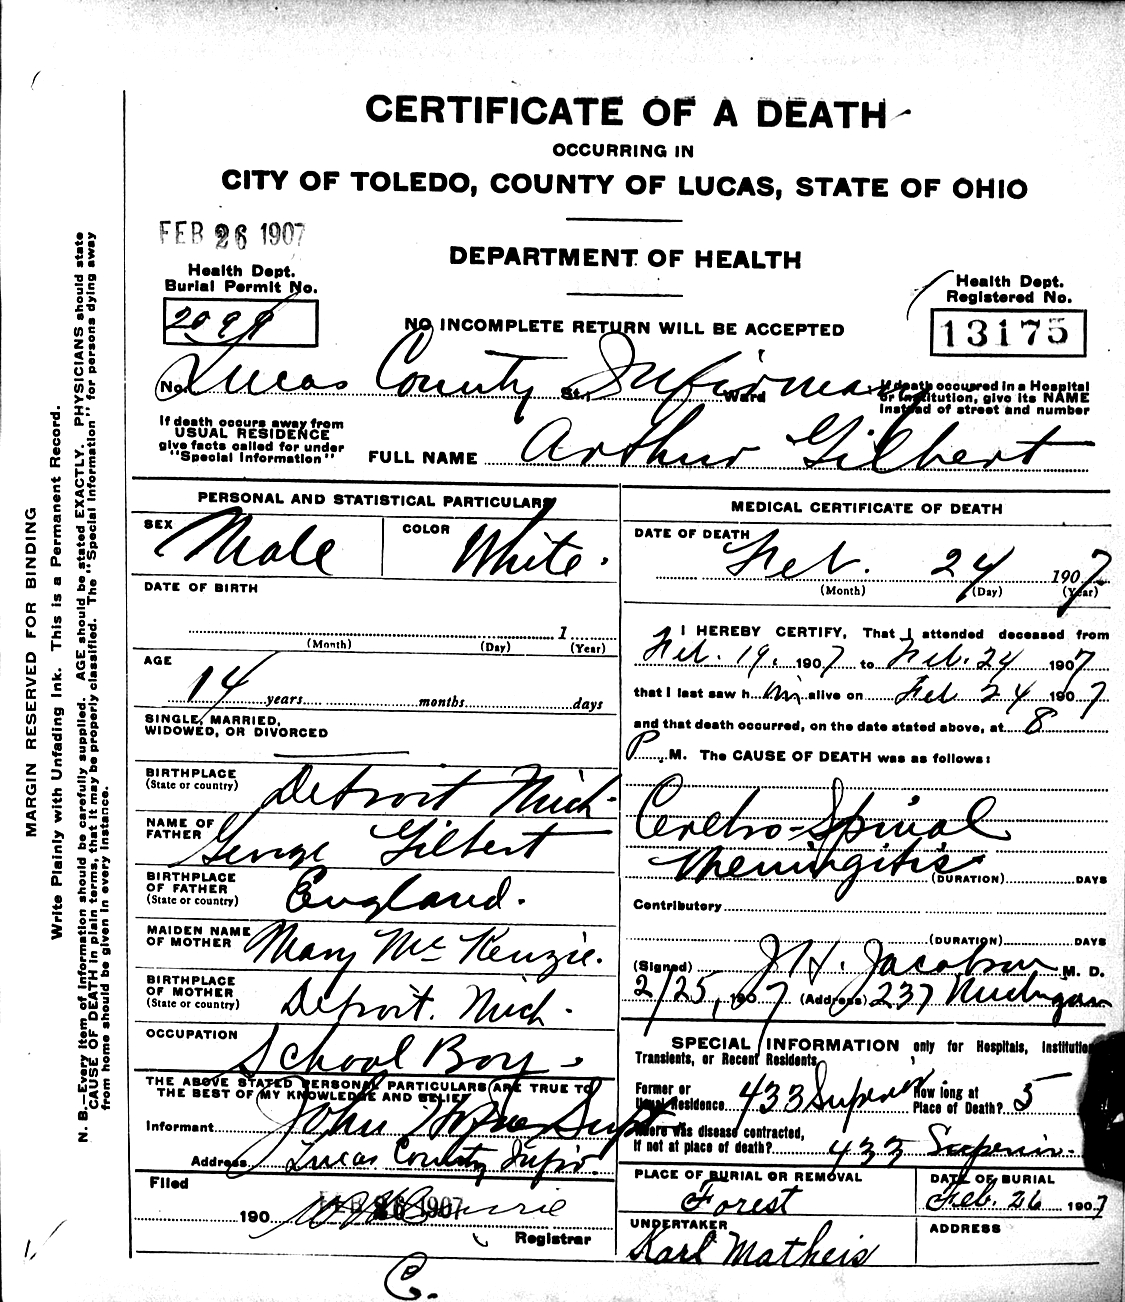 CERTIFICATE OF A DEATH
OCCURRING IN
CITY OF TOLEDO, COUNTY OF LUCAS, STATE OF OHIO
FEB 26 1907
DEPARTMENT OF HEALTH
Health Dept.
Burial Permit No.
2099
Health Dept.
Registered No.
13175
NO INCOMPLETE RETURN WILL BE ACCEPTED
No. Lucas County St. Infirmary Ward
If death occurred in a Hospital
or Institution, give its NAME
instead of street and number
If death occurs away from
USUAL RESIDENCE
give facts called for under
"Special Information"
FULL NAME Arthur Gilbert
PERSONAL AND STATISTICAL PARTICULARS
SEX Male
COLOR White.
DATE OF BIRTH
1
(Month) (Day) (Year)
AGE
14 years months days
SINGLE, MARRIED,
WIDOWED, OR DIVORCED
BIRTHPLACE
(State or country)
Detroit Mich.
NAME OF
FATHER
George Gilbert
BIRTHPLACE
OF FATHER
(State or country)
England.
MAIDEN NAME
OF MOTHER
Mary McKenzie.
BIRTHPLACE
OF MOTHER
(State or country)
Detroit. Mich.
OCCUPATION
School Boy
THE ABOVE STATED PERSONAL PARTICULARS ARE TRUE TO
THE BEST OF MY KNOWLEDGE AND BELIEF
Informant John Supt
Address Lucas County Infir.
Filed
190 FEB 26 1907
Registrar
C.
MEDICAL CERTIFICATE OF DEATH
DATE OF DEATH
Feb. 24 1907
(Month) (Day) (Year)
I HEREBY CERTIFY, That I attended deceased from
Feb. 19, 1907 to Feb. 24 1907
that I last saw him alive on Feb 24 1907
and that death occurred, on the date stated above, at 8
P. M. The CAUSE OF DEATH was as follows:
Cerebro-Spinal
Meningitis
(DURATION) DAYS
Contributory
(DURATION) DAYS
(Signed) J. H. Jacobson M. D.
2/25, 1907 (Address) 237 Michigan
SPECIAL INFORMATION only for Hospitals, Institutions
Transients, or Recent Residents,
Former or
Usual Residence 433 Superior
How long at
Place of Death? 5
Where was disease contracted,
If not at place of death? 433 Superior.
PLACE OF BURIAL OR REMOVAL
Forest
DATE OF BURIAL
Feb. 26 1907
UNDERTAKER
Karl Matheis
ADDRESS
MARGIN RESERVED FOR BINDING
Write Plainly with Unfading Ink. This is a Permanent Record.
N. B.—Every item of information should be carefully supplied. AGE should be stated EXACTLY. PHYSICIANS should state
CAUSE OF DEATH in plain terms, that it may be properly classified. The "Special Information" for persons dying away
from home should be given in every instance.